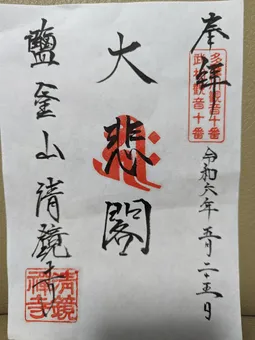 奉拝
多摩観音十番
武相観音十番
令和六年五月二十五日
大悲閣
鹽釜山清鏡寺
清鏡禅寺